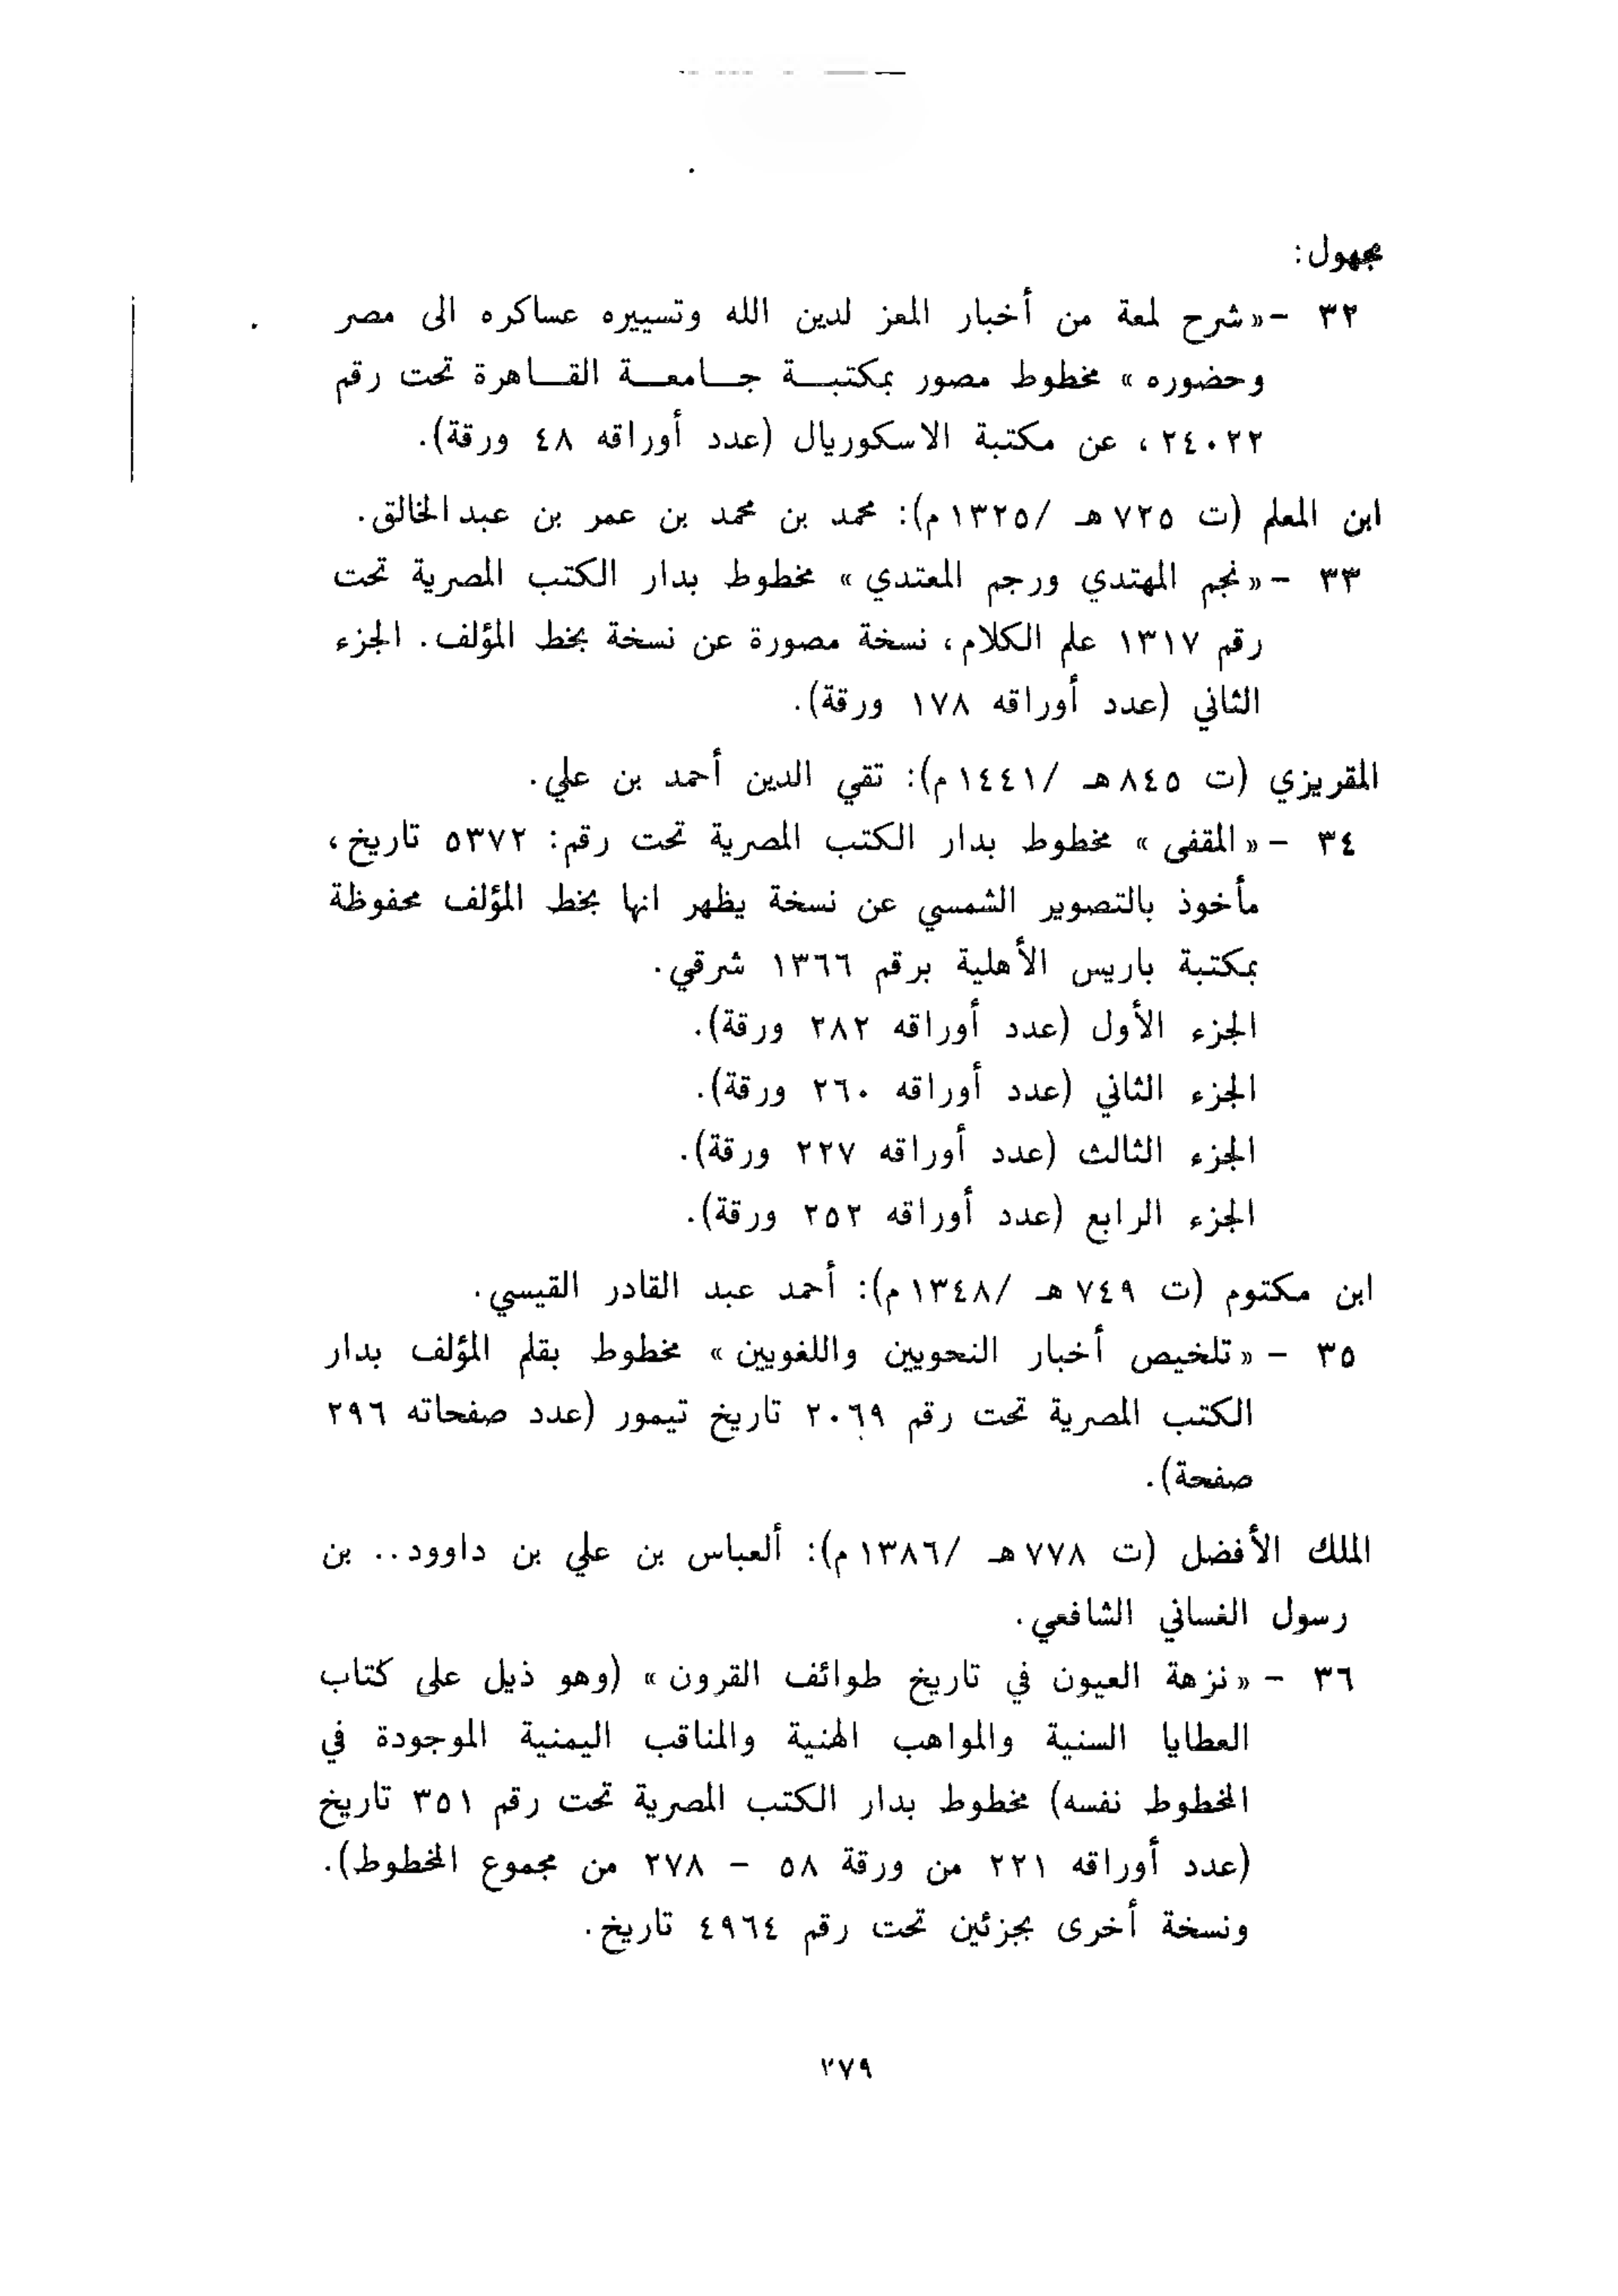 مجهول:
٣٢ - «شرح لمعة من أخبار المعز لدين الله وتسييره عساكره الى مصر
وحضوره» مخطوط مصور بمكتبة جامعة القاهرة تحت رقم
٢٤٠٢٢، عن مكتبة الاسكوريال (عدد أوراقه ٤٨ ورقة).
ابن المعلم (ت ٧٢٥ هـ /١٣٢٥ م): محمد بن محمد بن عمر بن عبدالخالق.
٣٣ - «نجم المهتدي ورجم المعتدي» مخطوط بدار الكتب المصرية تحت
رقم ١٣١٧ علم الكلام، نسخة مصورة عن نسخة بخط المؤلف. الجزء
الثاني (عدد أوراقه ١٧٨ ورقة).
المقريزي (ت ٨٤٥ هـ /١٤٤١ م): تقي الدين أحمد بن علي.
٣٤ - «المقفى» مخطوط بدار الكتب المصرية تحت رقم: ٥٣٧٢ تاريخ،
مأخوذ بالتصوير الشمسي عن نسخة يظهر انها بخط المؤلف محفوظة
بمكتبة باريس الأهلية برقم ١٣٦٦ شرقي.
الجزء الأول (عدد أوراقه ٢٨٢ ورقة).
الجزء الثاني (عدد أوراقه ٢٦٠ ورقة).
الجزء الثالث (عدد أوراقه ٢٢٧ ورقة).
الجزء الرابع (عدد أوراقه ٢٥٢ ورقة).
ابن مكتوم (ت ٧٤٩ هـ /١٣٤٨ م): أحمد عبد القادر القيسي.
٣٥ - «تلخيص أخبار النحويين واللغويين» مخطوط بقلم المؤلف بدار
الكتب المصرية تحت رقم ٢٠٦٩ تاريخ تيمور (عدد صفحاته ٢٩٦
صفحة).
الملك الأفضل (ت ٧٧٨ هـ /١٣٨٦ م): ألعباس بن علي بن داوود.. بن
رسول الغساني الشافعي.
٣٦ - «نزهة العيون في تاريخ طوائف القرون» (وهو ذيل على كتاب
العطايا السنية والمواهب الهنية والمناقب اليمنية الموجودة في
المخطوط نفسه) مخطوط بدار الكتب المصرية تحت رقم ٣٥١ تاريخ
(عدد أوراقه ٢٢١ من ورقة ٥٨ - ٢٧٨ من مجموع المخطوط).
ونسخة أخرى بجزئين تحت رقم ٤٩٦٤ تاريخ.
٢٧٩